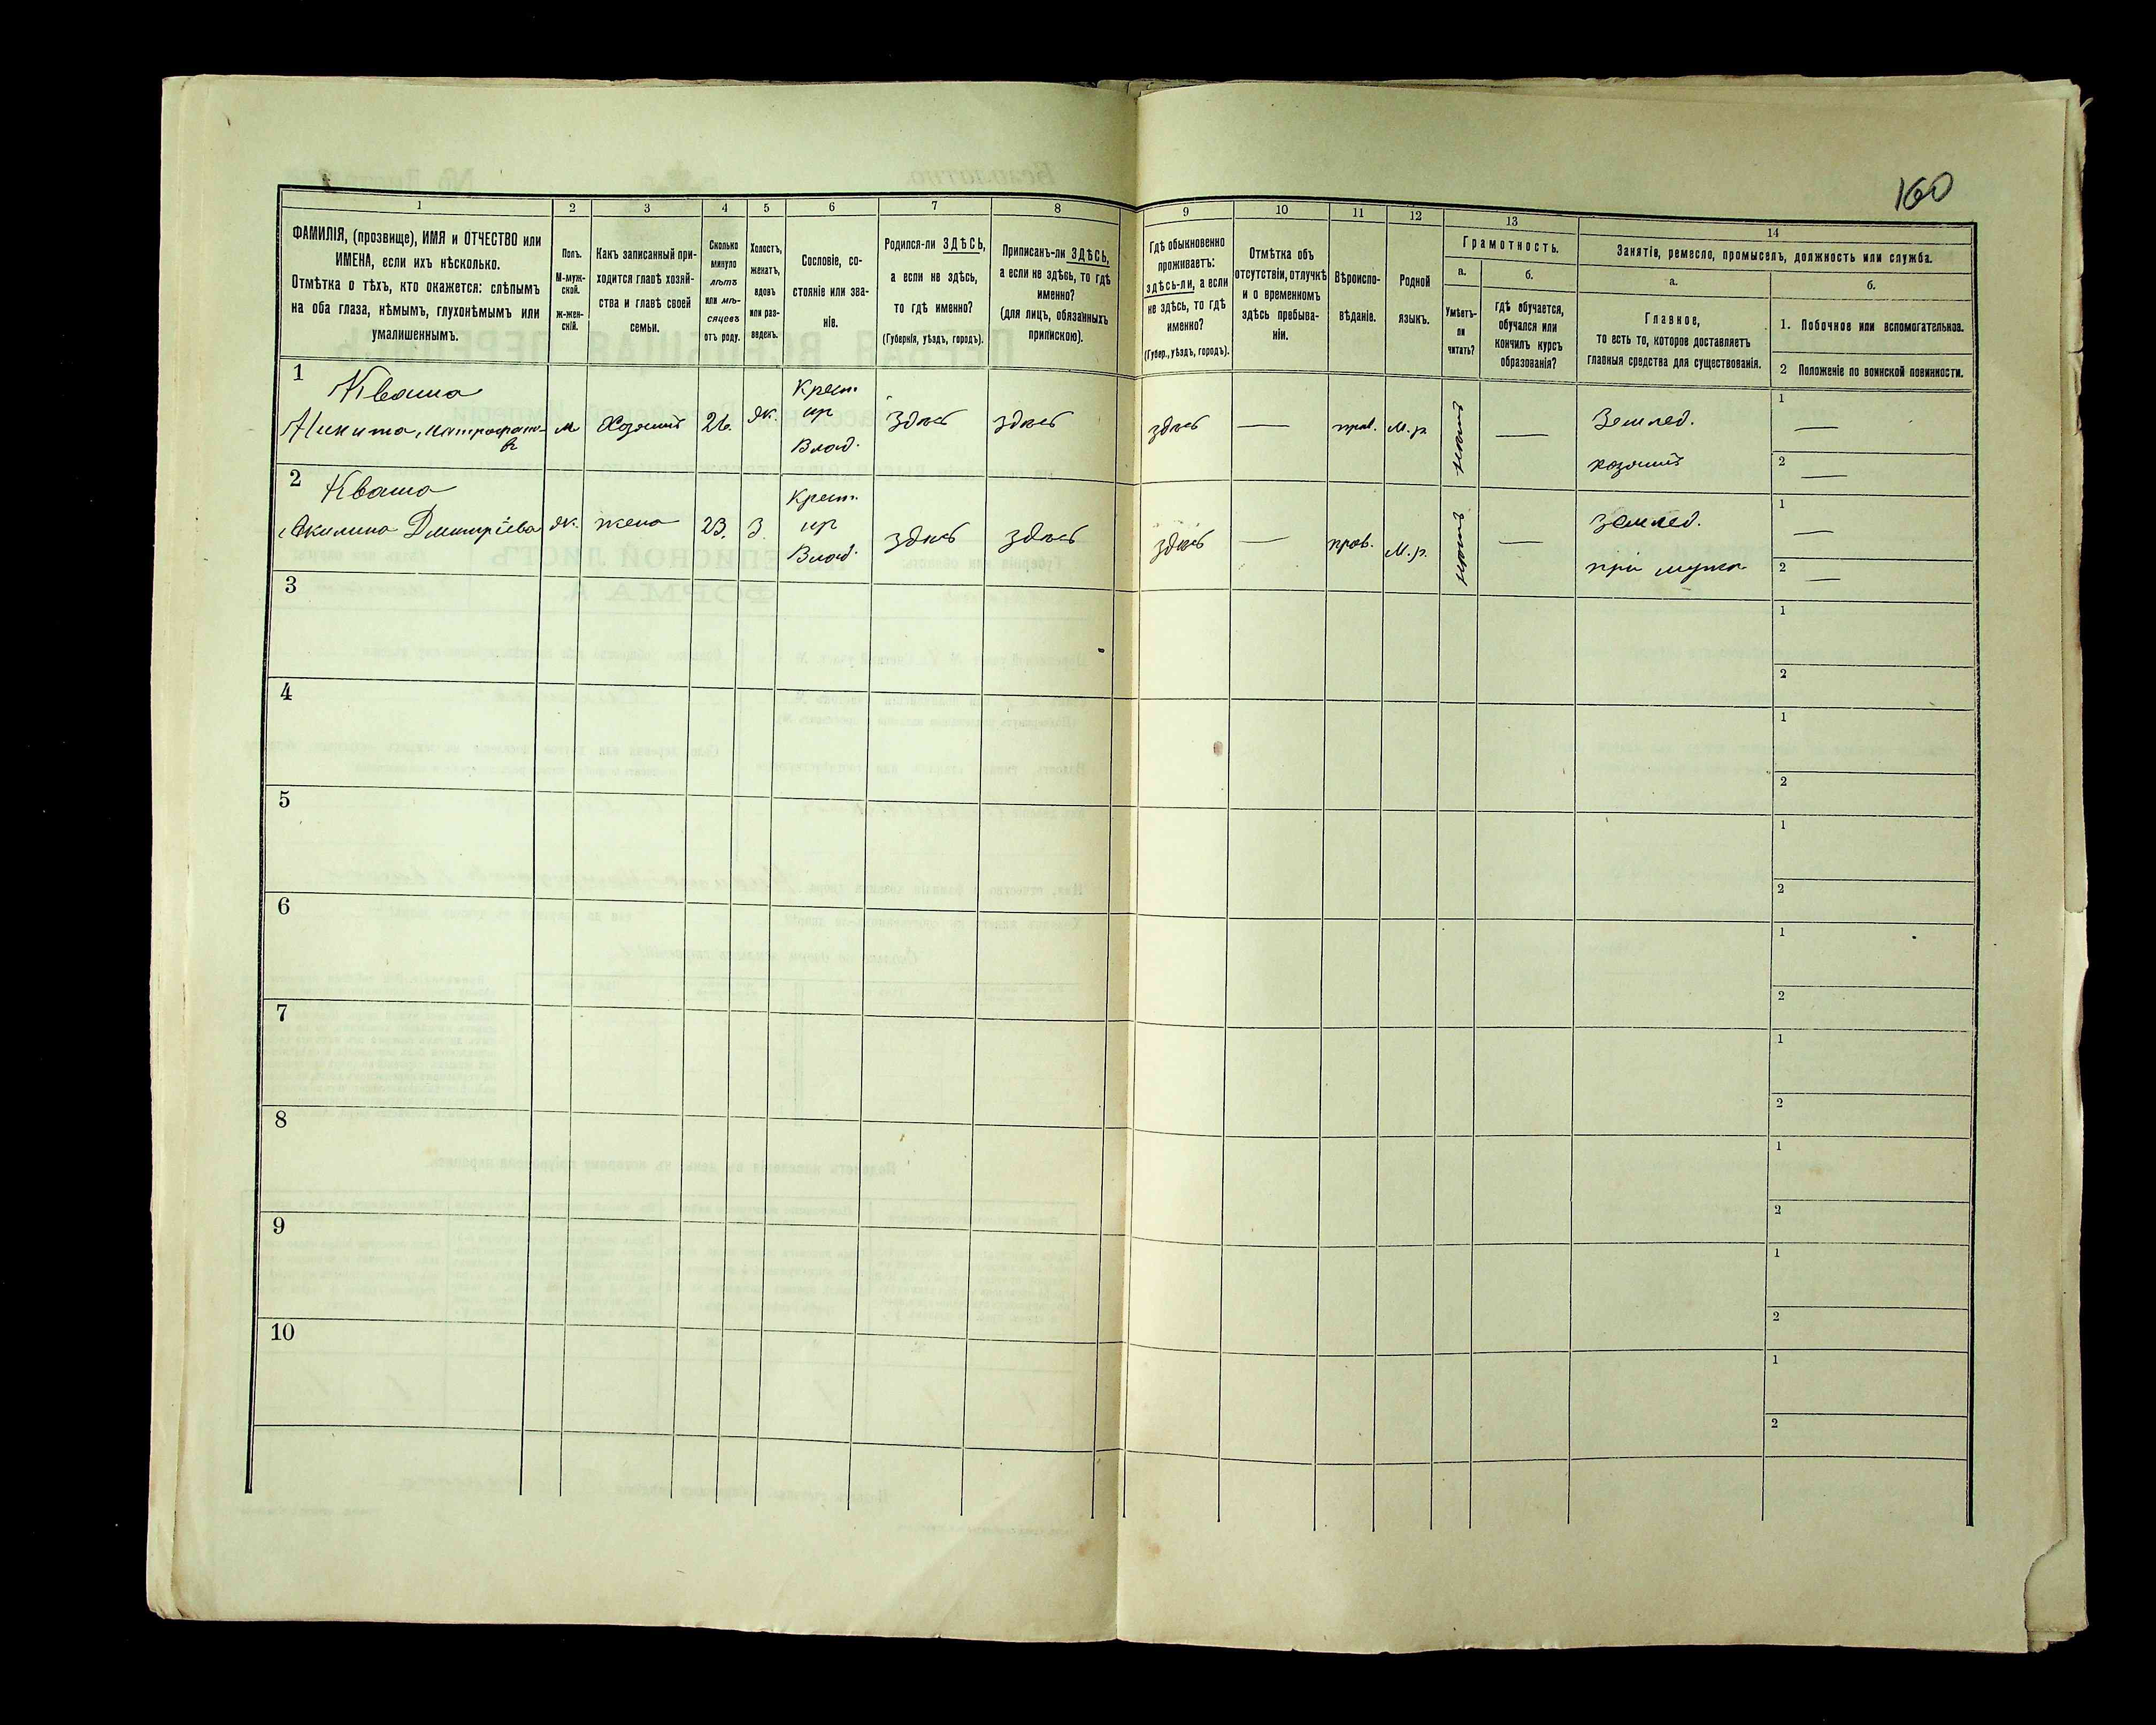 160
1
2
3
4
5
6
7
8
9
10
11
12
13
14
ФАМИЛІЯ, (прозвище), ИМЯ и ОТЧЕСТВО или
ИМЕНА, если ихъ нѣсколько.
Отмѣтка о тѣхъ, кто окажется: слѣпымъ
на оба глаза, нѣмымъ, глухонѣмымъ или
умалишеннымъ.
Полъ.
М-муж-
ской.
ж-жен-
скій.
Какъ записанный при-
ходится главѣ хозяй-
ства и главѣ своей
семьи.
Сколько
минуло
лѣтъ
или мѣ-
сяцевъ
отъ роду.
Холостъ,
женатъ,
вдовъ
или раз-
веденъ.
Сословіе, со-
стояніе или зва-
ніе.
Родился-ли ЗДѢСЬ,
а если не здѣсь,
то гдѣ именно?
(Губернія, уѣздъ, городъ).
Приписанъ-ли ЗДѢСЬ,
а если не здѣсь, то гдѣ
именно?
(для лицъ, обязанныхъ
припискою).
Гдѣ обыкновенно
проживаетъ:
здѣсь-ли, а если
не здѣсь, то гдѣ
именно?
(Губер., уѣздъ, городъ).
Отмѣтка объ
отсутствіи, отлучкѣ
и о временномъ
здѣсь пребыва-
ніи.
Вѣроиспо-
вѣданіе.
Родной
языкъ.
Грамотность.
а.
Умѣетъ-
ли
читать?
б.
гдѣ обучается,
обучался или
кончилъ курсъ
образованія?
Занятія, ремесло, промыселъ, должность или служба.
а.
Главное,
то есть то, которое доставляетъ
главныя средства для существованія.
б.
1. Побочное или вспомогательное.
2 Положеніе по воинской повинности.
1
Кваша
Никита Митрофано-
въ
м
Хозяинъ
26.
ж.
Крест.
ир
Влад.
здѣсь
здѣсь
здѣсь
—
прав.
М. р.
нѣтъ
—
Землед.
хозяинъ
1
—
2
—
2
Кваша
Акилина Дмитріева
ж.
жена
23.
З.
Крест.
ир
Влад.
здѣсь
здѣсь
здѣсь
—
прав.
М. р.
нѣтъ
—
землед.
при мужѣ
1
—
2
—
3
1
2
4
1
2
5
1
2
6
1
2
7
1
2
8
1
2
9
1
2
10
1
2